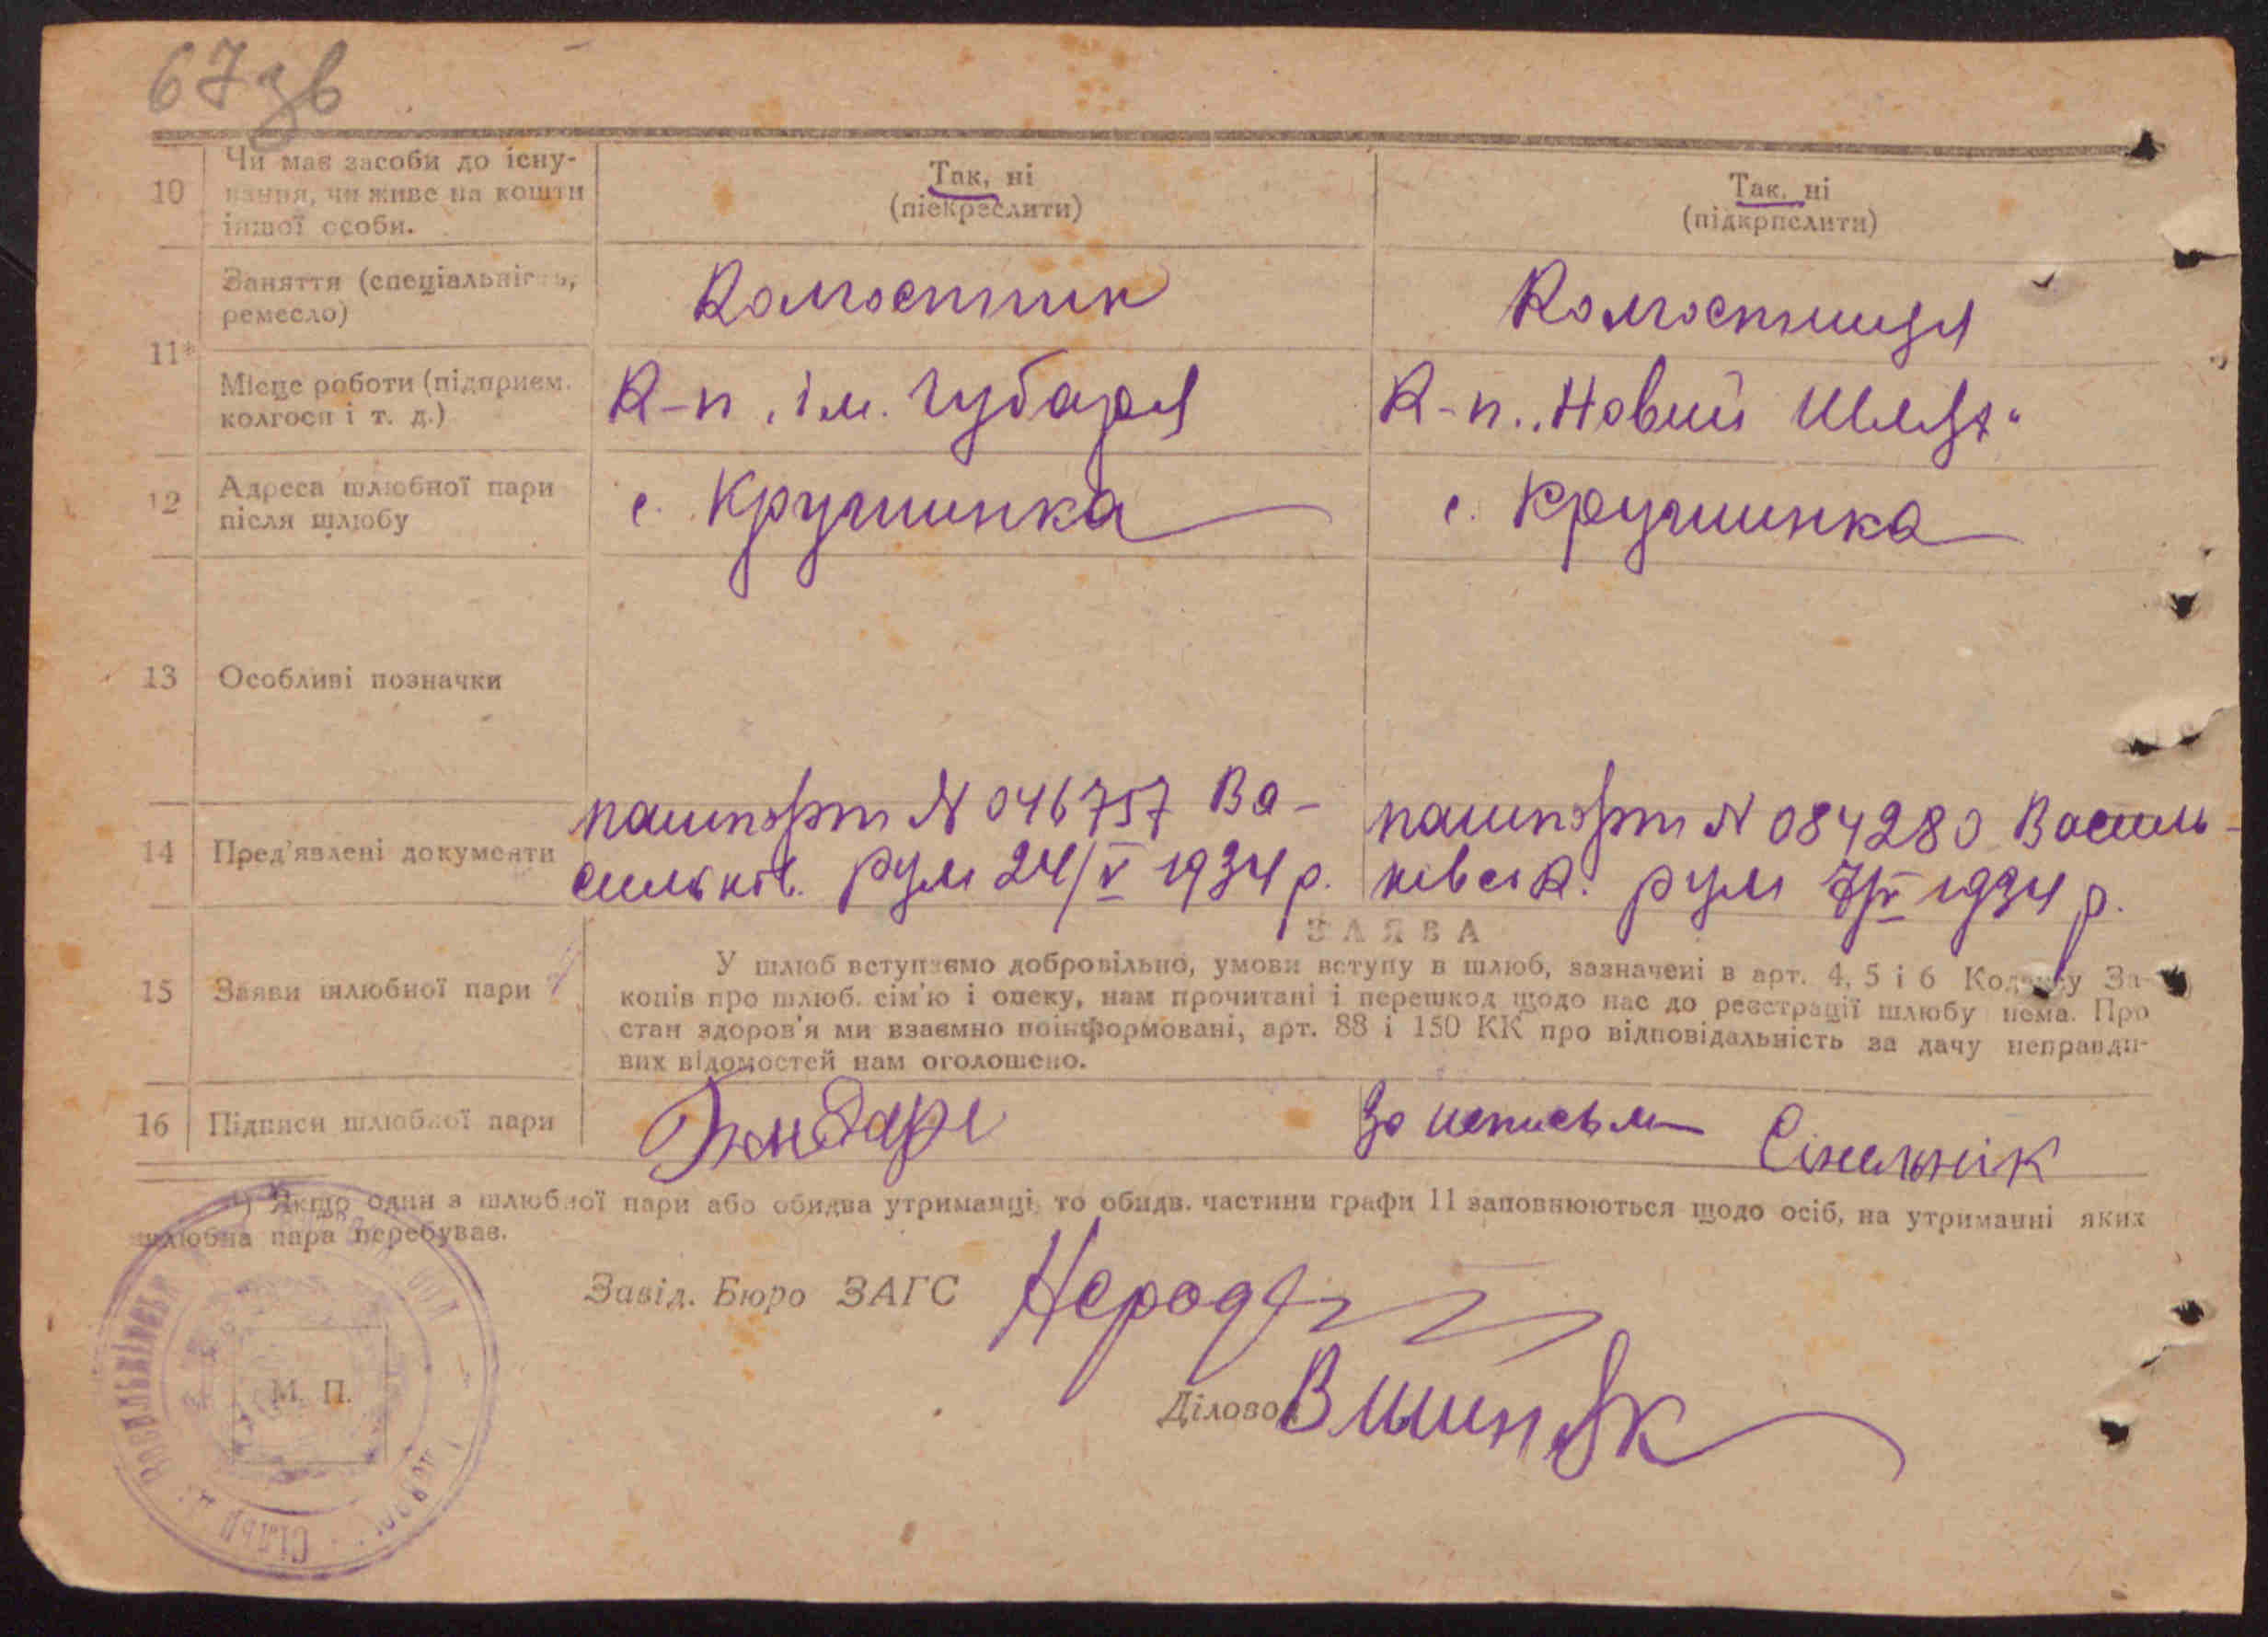 67 зв
10
Чи має засоби до існу-
вання, чи живе на кошти
іншої особи.
Так, ні
(піекреслити)
Так, ні
(підкрпслити)
11*
Заняття (спеціальність,
ремесло)
Колгоспник
Колгоспниця
Місце роботи (підприєм.
колгосп і т. д.)
К-п „ім. Чубаря
К-п „Новий Шлях“
12
Адреса шлюбної пари
після шлюбу
с. Кручинка
с. Кручинка
13
Особливі позначки
14
Пред'явлені документи
пашпорт N 046757 Ва-
сильків. рум 24/V 1934 р.
пашпорт N 084280 Василь-
ківськ. рум 7/IV 1934 р.
15
Заяви шлюбної пари
ЗАЯВА
У шлюб вступаємо добровільно, умови вступу в шлюб, зазначені в арт. 4, 5 і 6 Кодексу За-
конів про шлюб. сім'ю і опеку, нам прочитані і перешкод щодо нас до реєстрації шлюбу нема. Про
стан здоров'я ми взаємно поінформовані, арт. 88 і 150 КК про відповідальність за дачу неправди-
вих відомостей нам оголошено.
16
Підписи шлюбної пари
За неписьм
Сінельнік
*) Якщо один з шлюбної пари або обидва утриманці, то обидв. частини графи 11 заповнюються щодо осіб, на утриманні яких
шлюбна пара перебуває.
Завід. Бюро ЗАГС
Ділово
Вишняк
М. П.